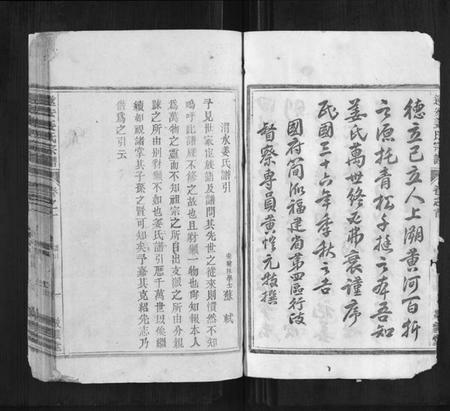 德立己立人上溯黃河百折
之源托青松千挺之森吾知
姜氏萬世終必弗衰謹序
民國三十六年季秋之吉
國府簡派福建省第四區行政
督察專員黃愷元敬撰
渭水姜氏譜引
宋翰林學士 蘇軾
予見世家宦族語及譜問其先世之從來則懵然不知
嗚呼此譜牒不修之故也且對獺一物也尚知報本人
爲萬物之靈而不知祖宗之所自出支派之所由分親
疎之所由別對獺不如也姜氏譜引歷千萬世以後繼
續如視諸掌其子孫之賢可知矣予嘉其克紹先志乃
僭爲之引云